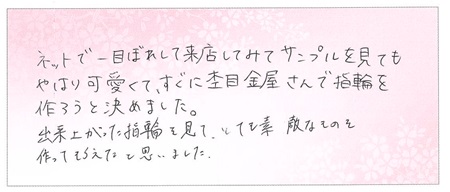 ネットで一目ぼれして来店してみてサンプルを見ても
やはり可愛くて、すぐに杢目金屋さんで指輪を
作ろうと決めました。
出来上がった指輪を見て、とても素敵なものを
作ってもらえたなと思いました。